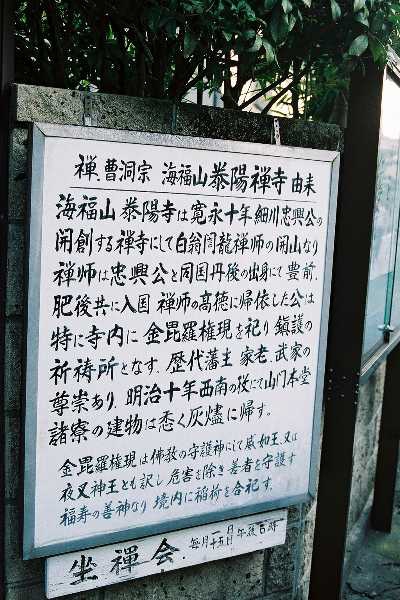 禅、曹洞宗 海福山 泰陽禅寺 由来
海福山 泰陽寺は寛永十年 細川忠興公の
開創する禅寺にして白翁門龍禅師の開山なり
禅師は忠興公と同国丹後の出身にて 豊前、
肥後共に入国 禅師の高徳に帰依した公は
特に寺内に 金毘羅権現を祀り 鎮護の
祈祷所となす. 歴代藩主 家老、武家の
尊崇あり. 明治十年西南の役にて山門本堂
諸寮の建物は悉く灰燼に帰す。
金毘羅権現は佛教の守護神にして威如王、又は
夜叉神王とも訳し 危害を除き善者を守護す
福寿の善神なり 境内に稲荷を合祀す.
坐禅会
毎月 一日 十五日 午後七時